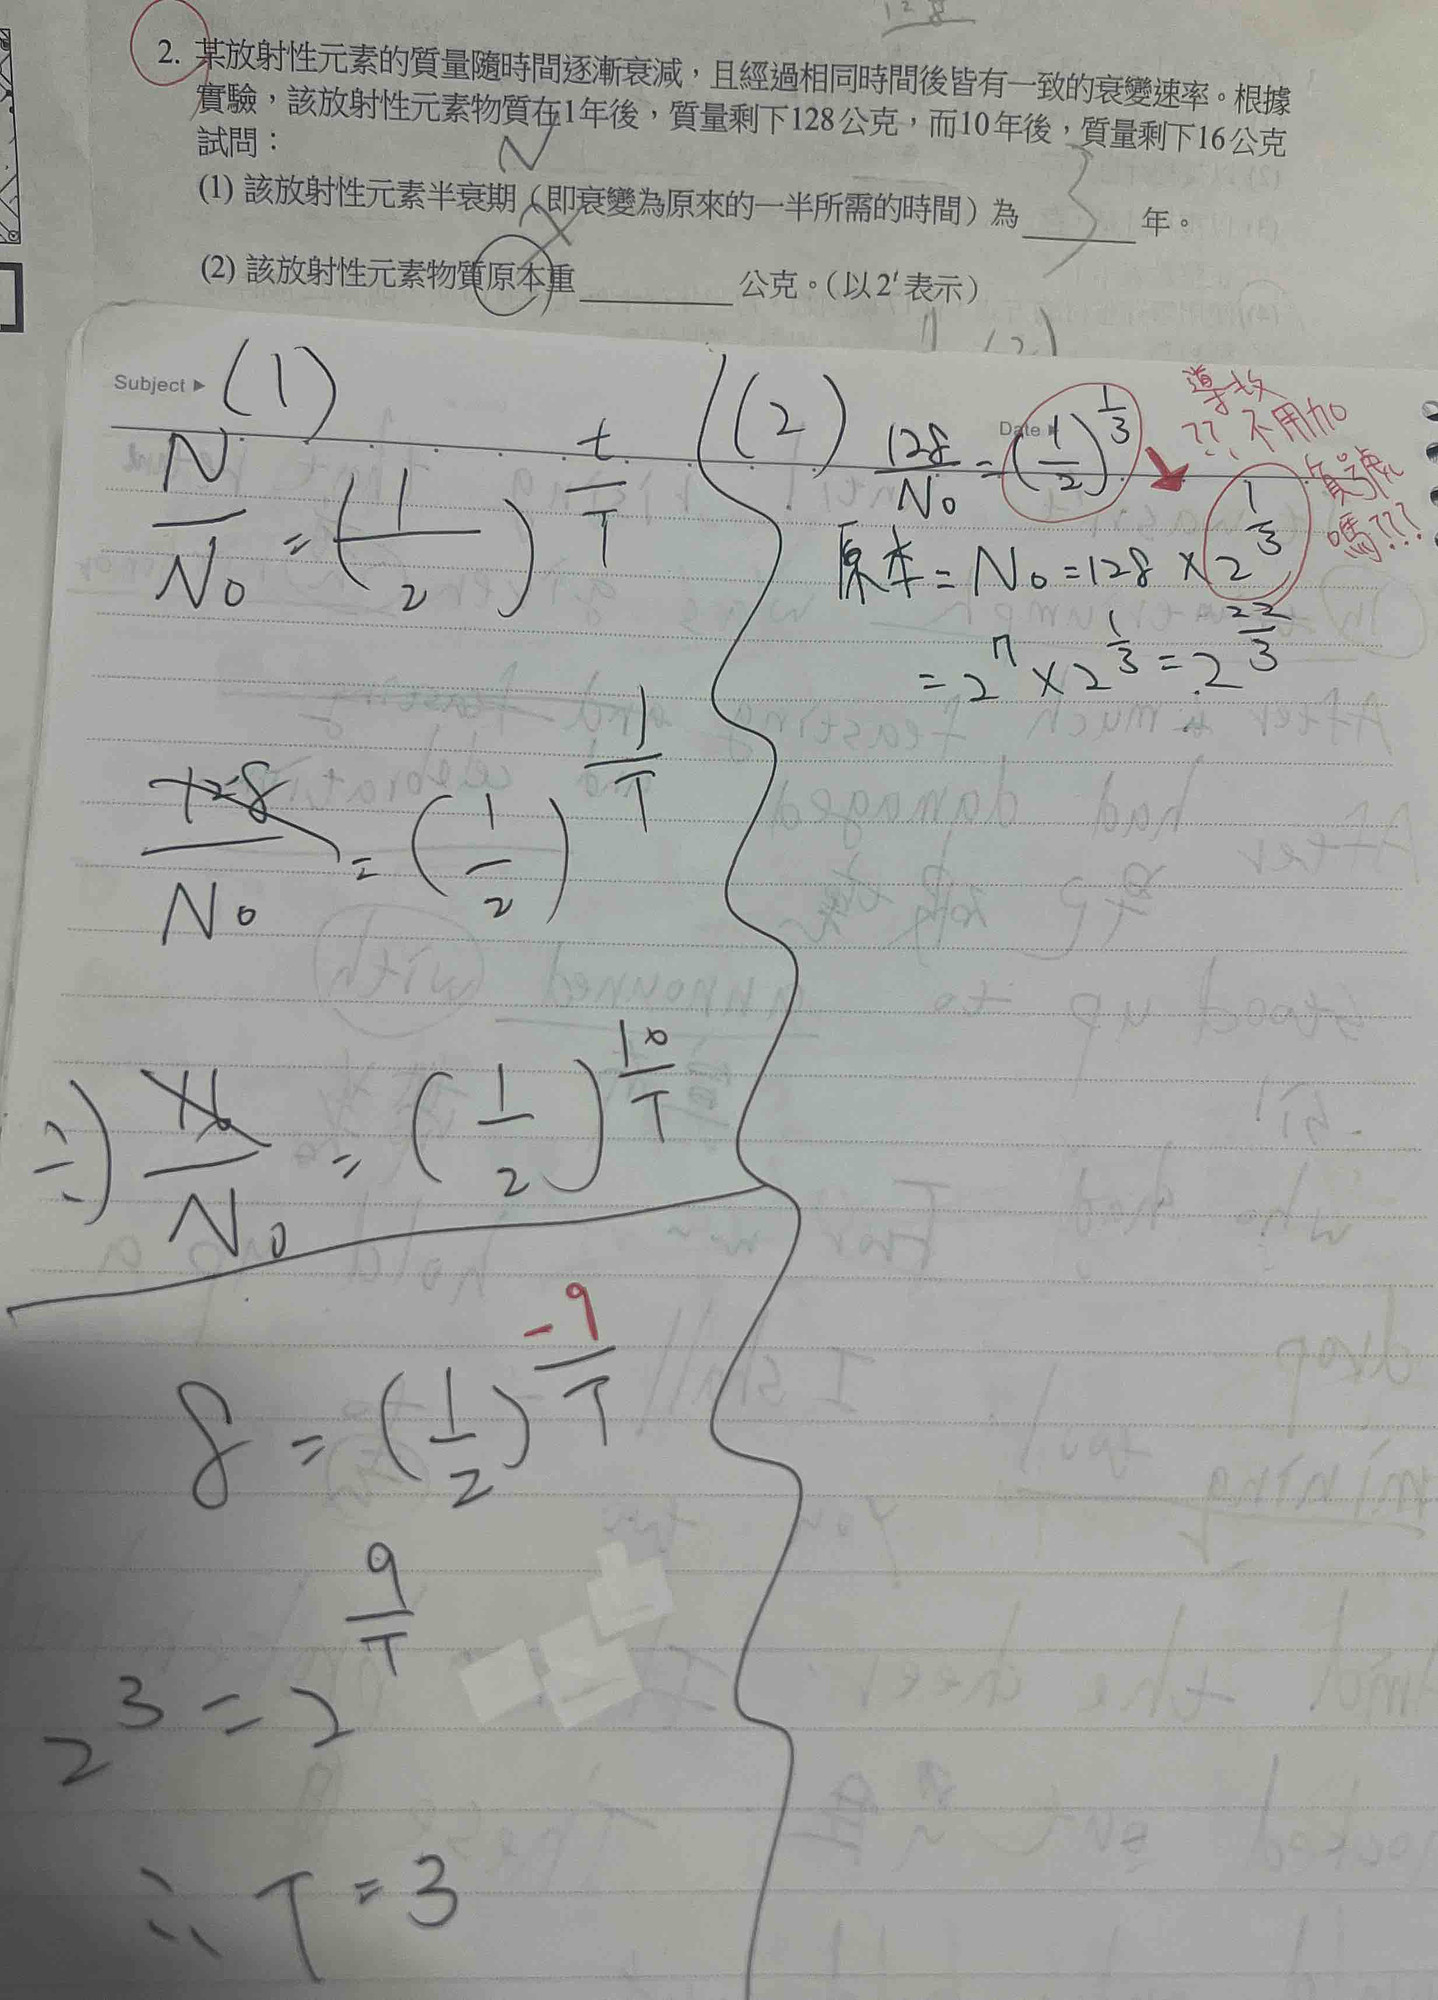 128
2. 某放射性元素的質量隨時間逐漸衰減，且經過相同時間後皆有一致的衰變速率。根據
實驗，該放射性元素物質在1年後，質量剩下128公克，而10年後，質量剩下16公克
試問：
N
(1) 該放射性元素半衰期（即衰變為原來的一半所需的時間）為______年。
3
(2) 該放射性元素物質原本重______公克。（以2^t表示）
Subject ▶ (1)
N/N₀ = (1/2)^(t/T)
128/N₀ = (1/2)^(1/T)
÷) 16/N₀ = (1/2)^(10/T)
8 = (1/2)^(-9/T)
2^3 = 2^(9/T)
∴ T = 3
(2)
Date ▶
128/N₀ = (1/2)^(1/3)
原本 = N₀ = 128 × 2^(1/3)
= 2^7 × 2^(1/3) = 2^(22/3)
?? 不用加
負號
嗎???